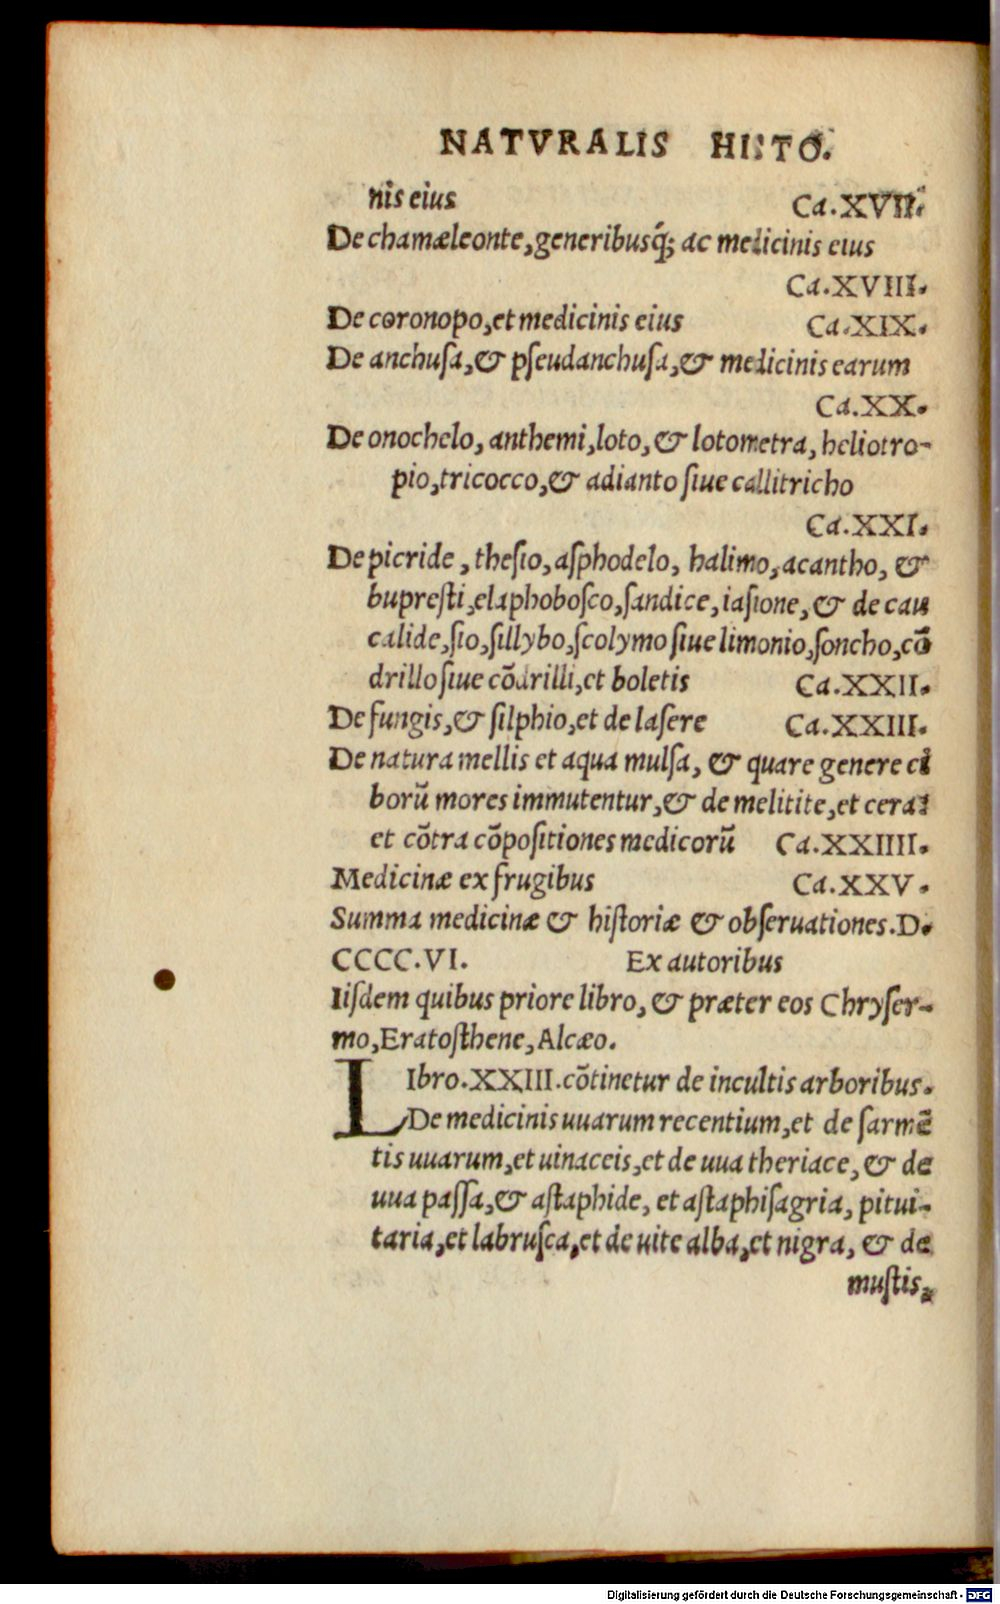 NATVRALIS HISTO.
nis eius Ca.XVII.
De chamæleonte, generibusq́; ac medicinis eius
Ca.XVIII.
De coronopo, et medicinis eius Ca.XIX.
De anchuſa, & pſeudanchuſa, & medicinis earum
Ca.XX.
De onochelo, anthemi, loto, & lotometra, heliotro-
pio, tricocco, & adianto ſiue callitricho
Ca.XXI.
De picride, theſio, aſphodelo, halimo, acantho, &
bupreſti, elaphoboſco, ſandice, iaſione, & de cau
calide, ſio, ſillybo, ſcolymo ſiue limonio, ſoncho, cõ
drillo ſiue cõdrilli, et boletis Ca.XXII.
De fungis, & ſilphio, et de laſere Ca.XXIII.
De natura mellis et aqua mulſa, & quare genere ci
borũ mores immutentur, & de melitite, et cera:
et cõtra cõpoſitiones medicorũ Ca.XXIIII.
Medicinæ ex frugibus Ca.XXV.
Summa medicinæ & hiſtoriæ & obſeruationes. D.
CCCC.VI. Ex autoribus
Iiſdem quibus priore libro, & præter eos Chryſer-
mo, Eratoſthene, Alcæo.
LIbro.XXIII.cõtinetur de incultis arboribus.
De medicinis uuarum recentium, et de ſarmẽ
tis uuarum, et uinaceis, et de uua theriace, & de
uua paſſa, & aſtaphide, et aſtaphiſagria, pitui-
taria, et labruſca, et de uite alba, et nigra, & de
muſtis,
Digitalisierung gefördert durch die Deutsche Forschungsgemeinschaft - DFG